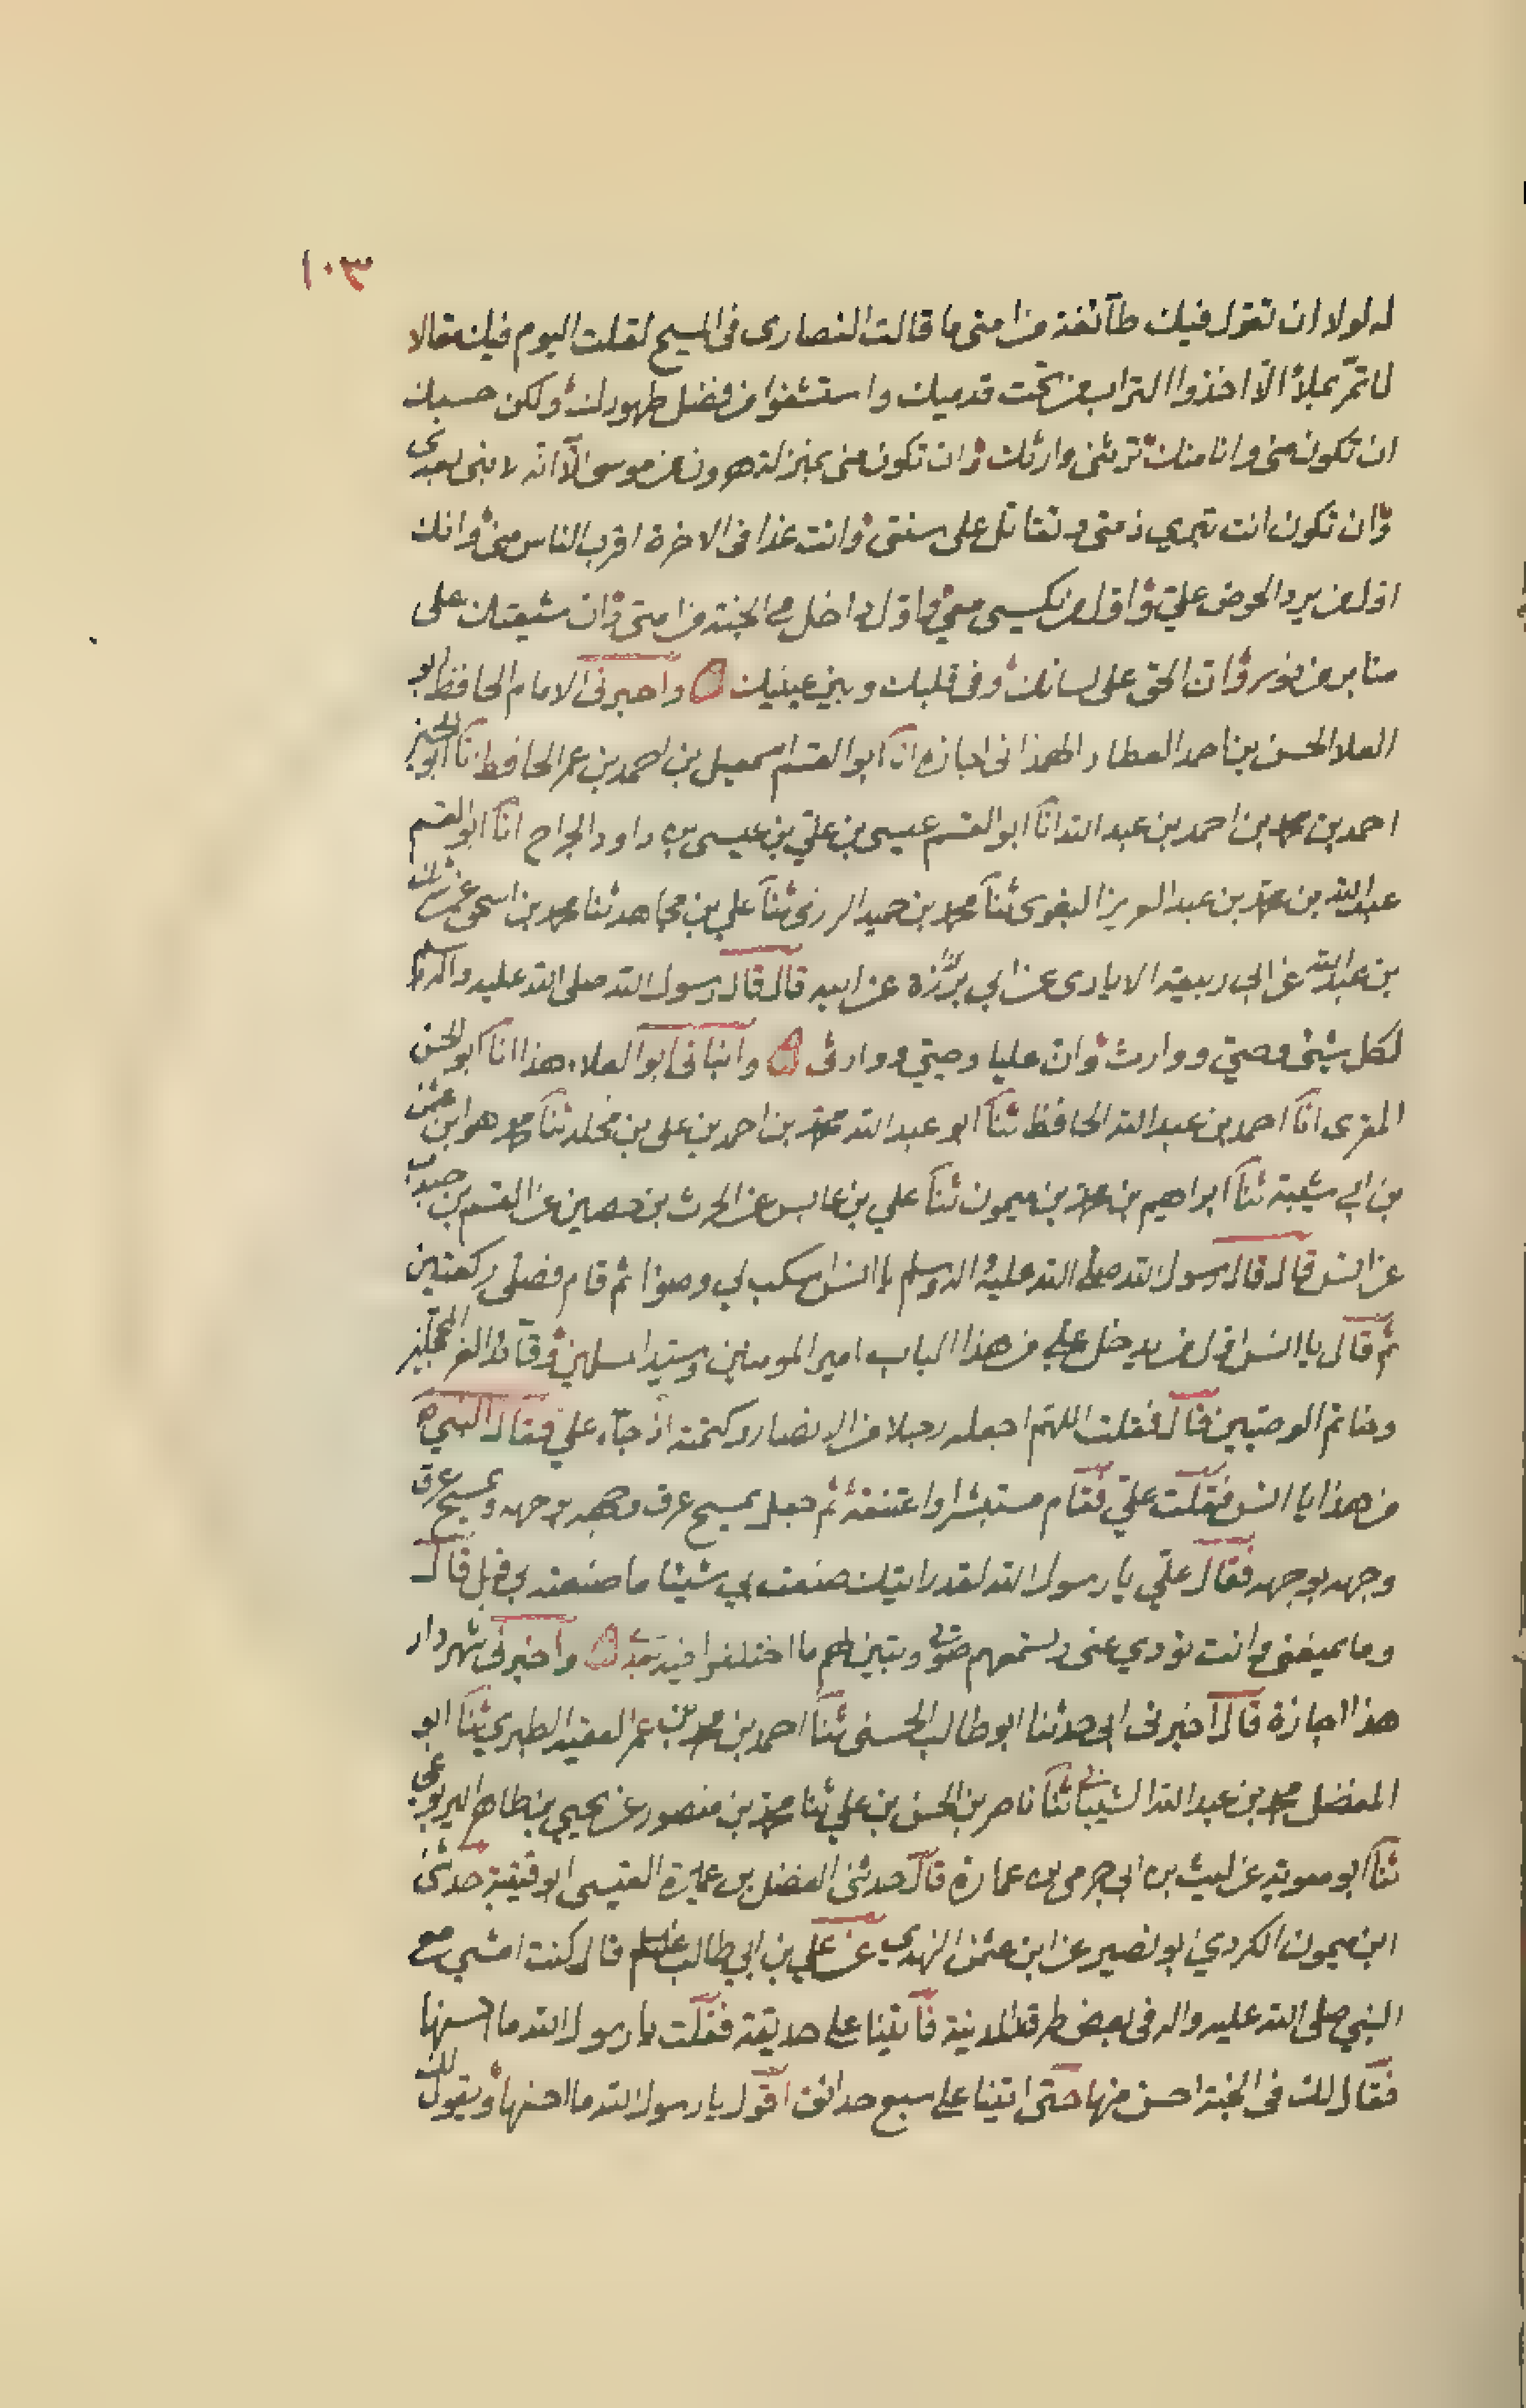 ١٠٣
له لولا ان تقول فيك طآئفة من امتى ما قالت النصارى فى المسيح لقلت اليوم فيك مقالا
لا تمرّ بملأ الّا اخذوا التراب من تحت قدميك واستشفوا من فضل طهورك ولكن حسبك
ان تكون منى وانا منك ترثنى وارثك وان تكون منى بمنزلة هرون من موسى الّا انه لا نبى بعدى
وان تكون انت تبرئ ذمتى وتقاتل على سنتى وانت غدا فى الاخرة اقرب الناس منى وانك
اول من يرد الحوض علىّ واول من يكسى معى واول داخل فى الجنة من امتى وان شيعتك على
منابر من نور وان الحق على لسانك وفى قلبك وبين عينيك واخبرنى الامام الحافظ ابو
العلا الحسن بن احمد العطار الهمذانى اجازة انا ابو القسم اسمعيل بن احمد بن عمر الحافظ انا ابو الحسين
احمد بن محمد بن احمد بن عبد الله انا ابو القسم عيسى بن على بن عيسى بن داود الجراح انا ابو القسم
عبد الله بن محمد بن عبد العزيز البغوى ثنا محمد بن حميد الرازى ثنا على بن مجاهد ثنا محمد بن اسحق عن شريك
بن عبد الله عن ابى ربيعة الايادى عن ابي بريدة عن ابيه قال قال رسول الله صلى الله عليه واله وسلم
لكل نبى وصىّ ووارث وان عليا وصيى ووارثى وانبانى ابو العلاء هذا انا ابو الحسن
المقرى انا احمد بن عبد الله الحافظ ثنا ابو عبد الله محمد بن احمد بن على بن مخلد ثنا محمد هو ابن عثمن
بن ابى شيبة ثنا ابراهيم بن محمد بن ميمون ثنا علي بن عابس عن الحرث بن حصين عن القسم بن جندب
عن انس قال قال رسول الله صلى الله عليه واله وسلم يا انس اسكب لي وضوا ثم قام فصلى ركعتين
ثم قال يا انس اول من يدخل على من هذا الباب امير المومنين وسيد المسلمين وقآئد الغر المحجلين
وخاتم الوصيين قال فقلت اللهم اجعله رجلا من الانصار وكتمته اذ جآء علي فقال النبي ص
من هذا يا انس فقلت على فقام مستبشرا واعتنقه ثم جعل يمسح عرق وجهه بوجهه ويمسح عرق
وجهه بوجهه فقال علي يا رسول الله لقد رايتك صنعت بي شيئا ما صنعته بي قبل قال
وما يمنعنى وانت تودي عنى وتسمعهم صوتى وتبين لهم ما اختلفوا فيه بعدى واخبرنى شهردار
هذا اجازة قال اخبرنى ابى حدثنا ابو طالب الحسنى ثنا احمد بن محمد بن عمر الفقيه الطبرى ثنا ابو
المفضل محمد بن عبد الله الشيبانى ثنا ناصر بن الحسن بن على ثنا محمد بن منصور عن يحيى بن طاهر اليربوعى
ثنا ابو معوية عن ليث بن ابى عن عمارة قال حدثنى الفضل بن عميرة القيسى ابو قتيبة حدثنى
ابن ميمون الكردي ابو نصير عن ابن عثمن النهدى عن على بن ابي طالب عليه السلم قال كنت امشى مع
النبي صلى الله عليه واله فى بعض طرق المدينة فآتينا على حديقة فقلت يا رسول الله ما احسنها
فقال لك فى الجنة احسن منها حتى اتينا على سبع حدائق اقول يا رسول الله ما احسنها ويقول لك